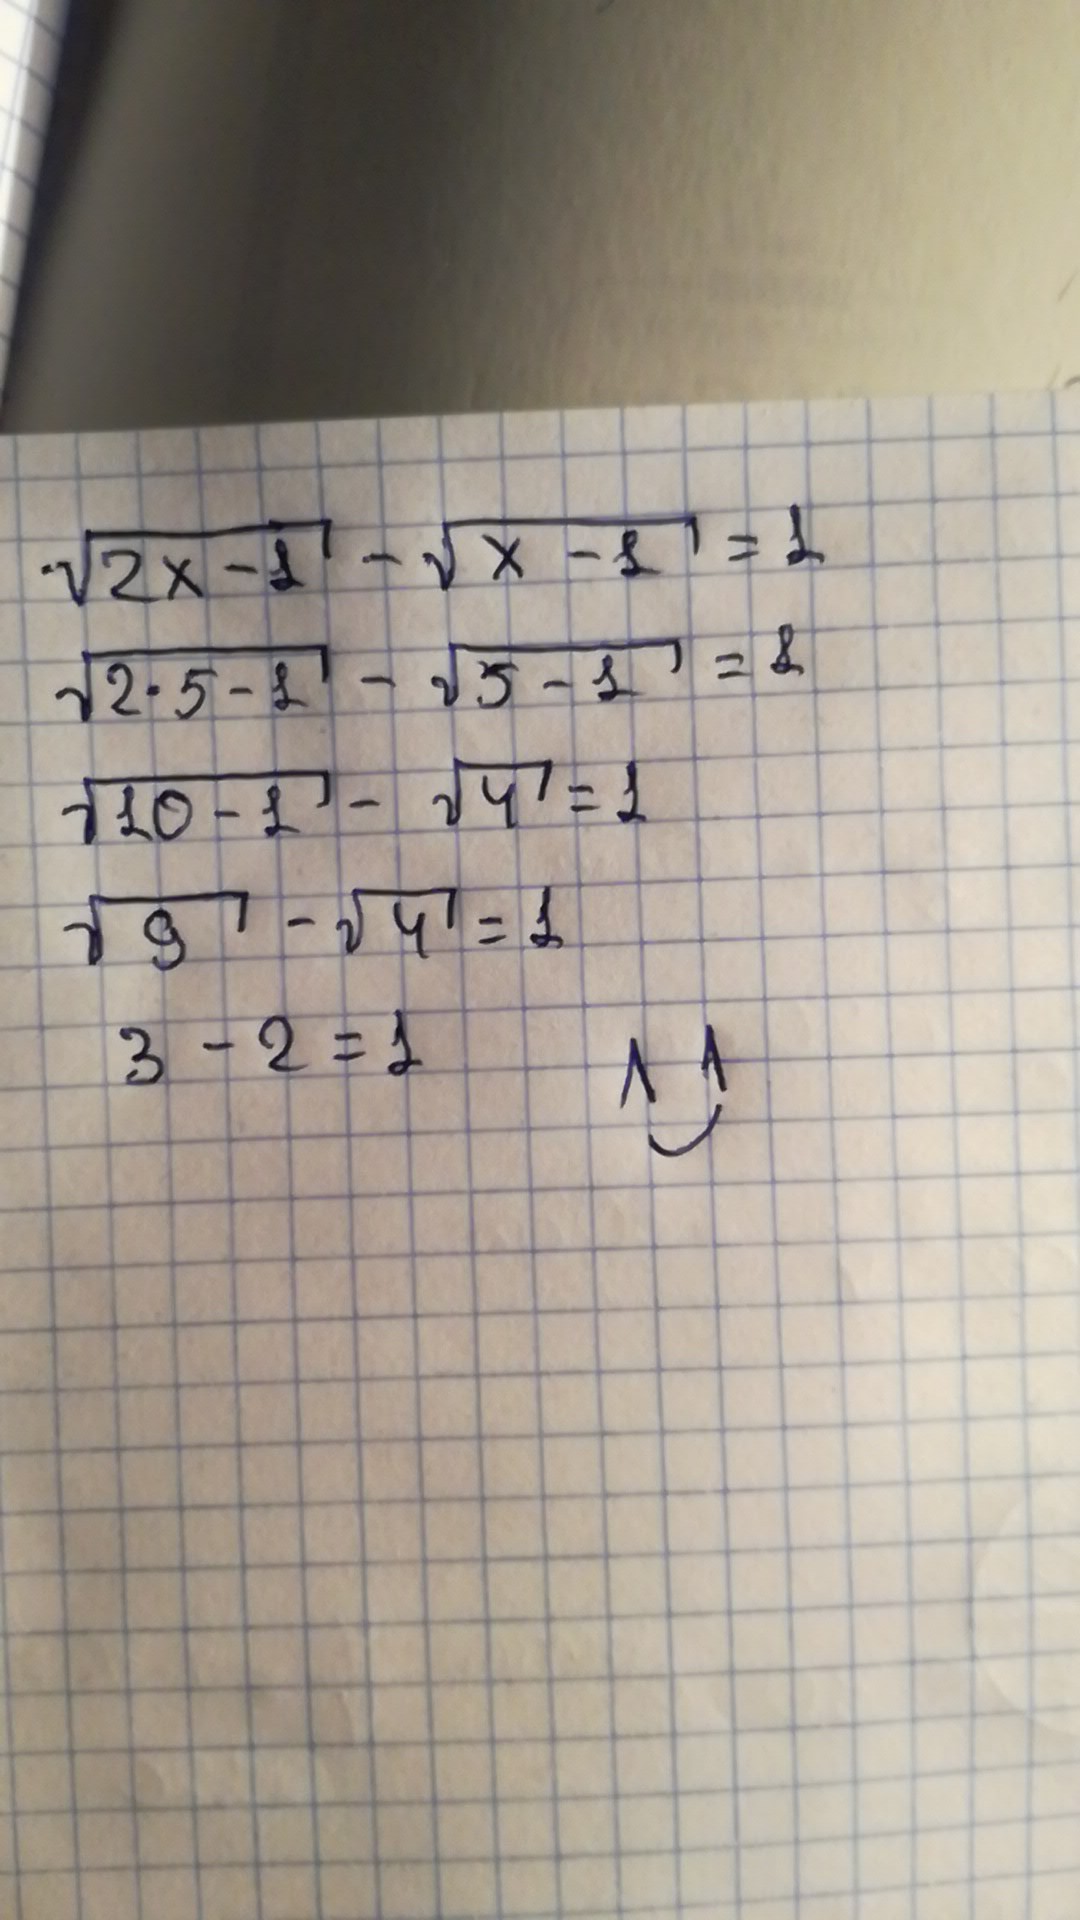 √2x-1 - √x-1 = 1
√2·5-1 - √5-1 = 1
√10-1 - √4 = 1
√9 - √4 = 1
3 - 2 = 1